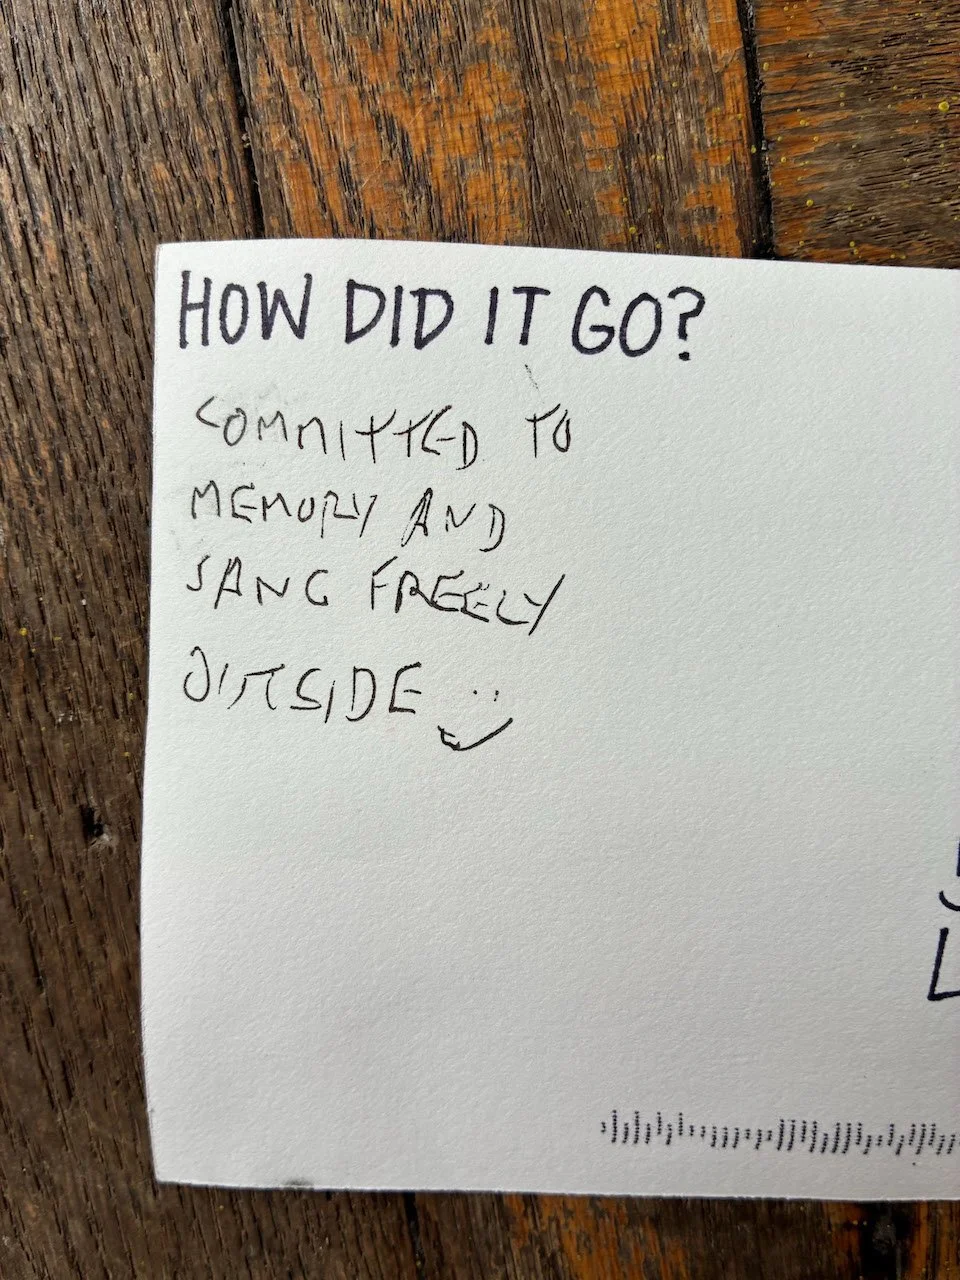 HOW DID IT GO?
COMMITTED TO
MEMORY AND
SANG FREELY
OUTSIDE